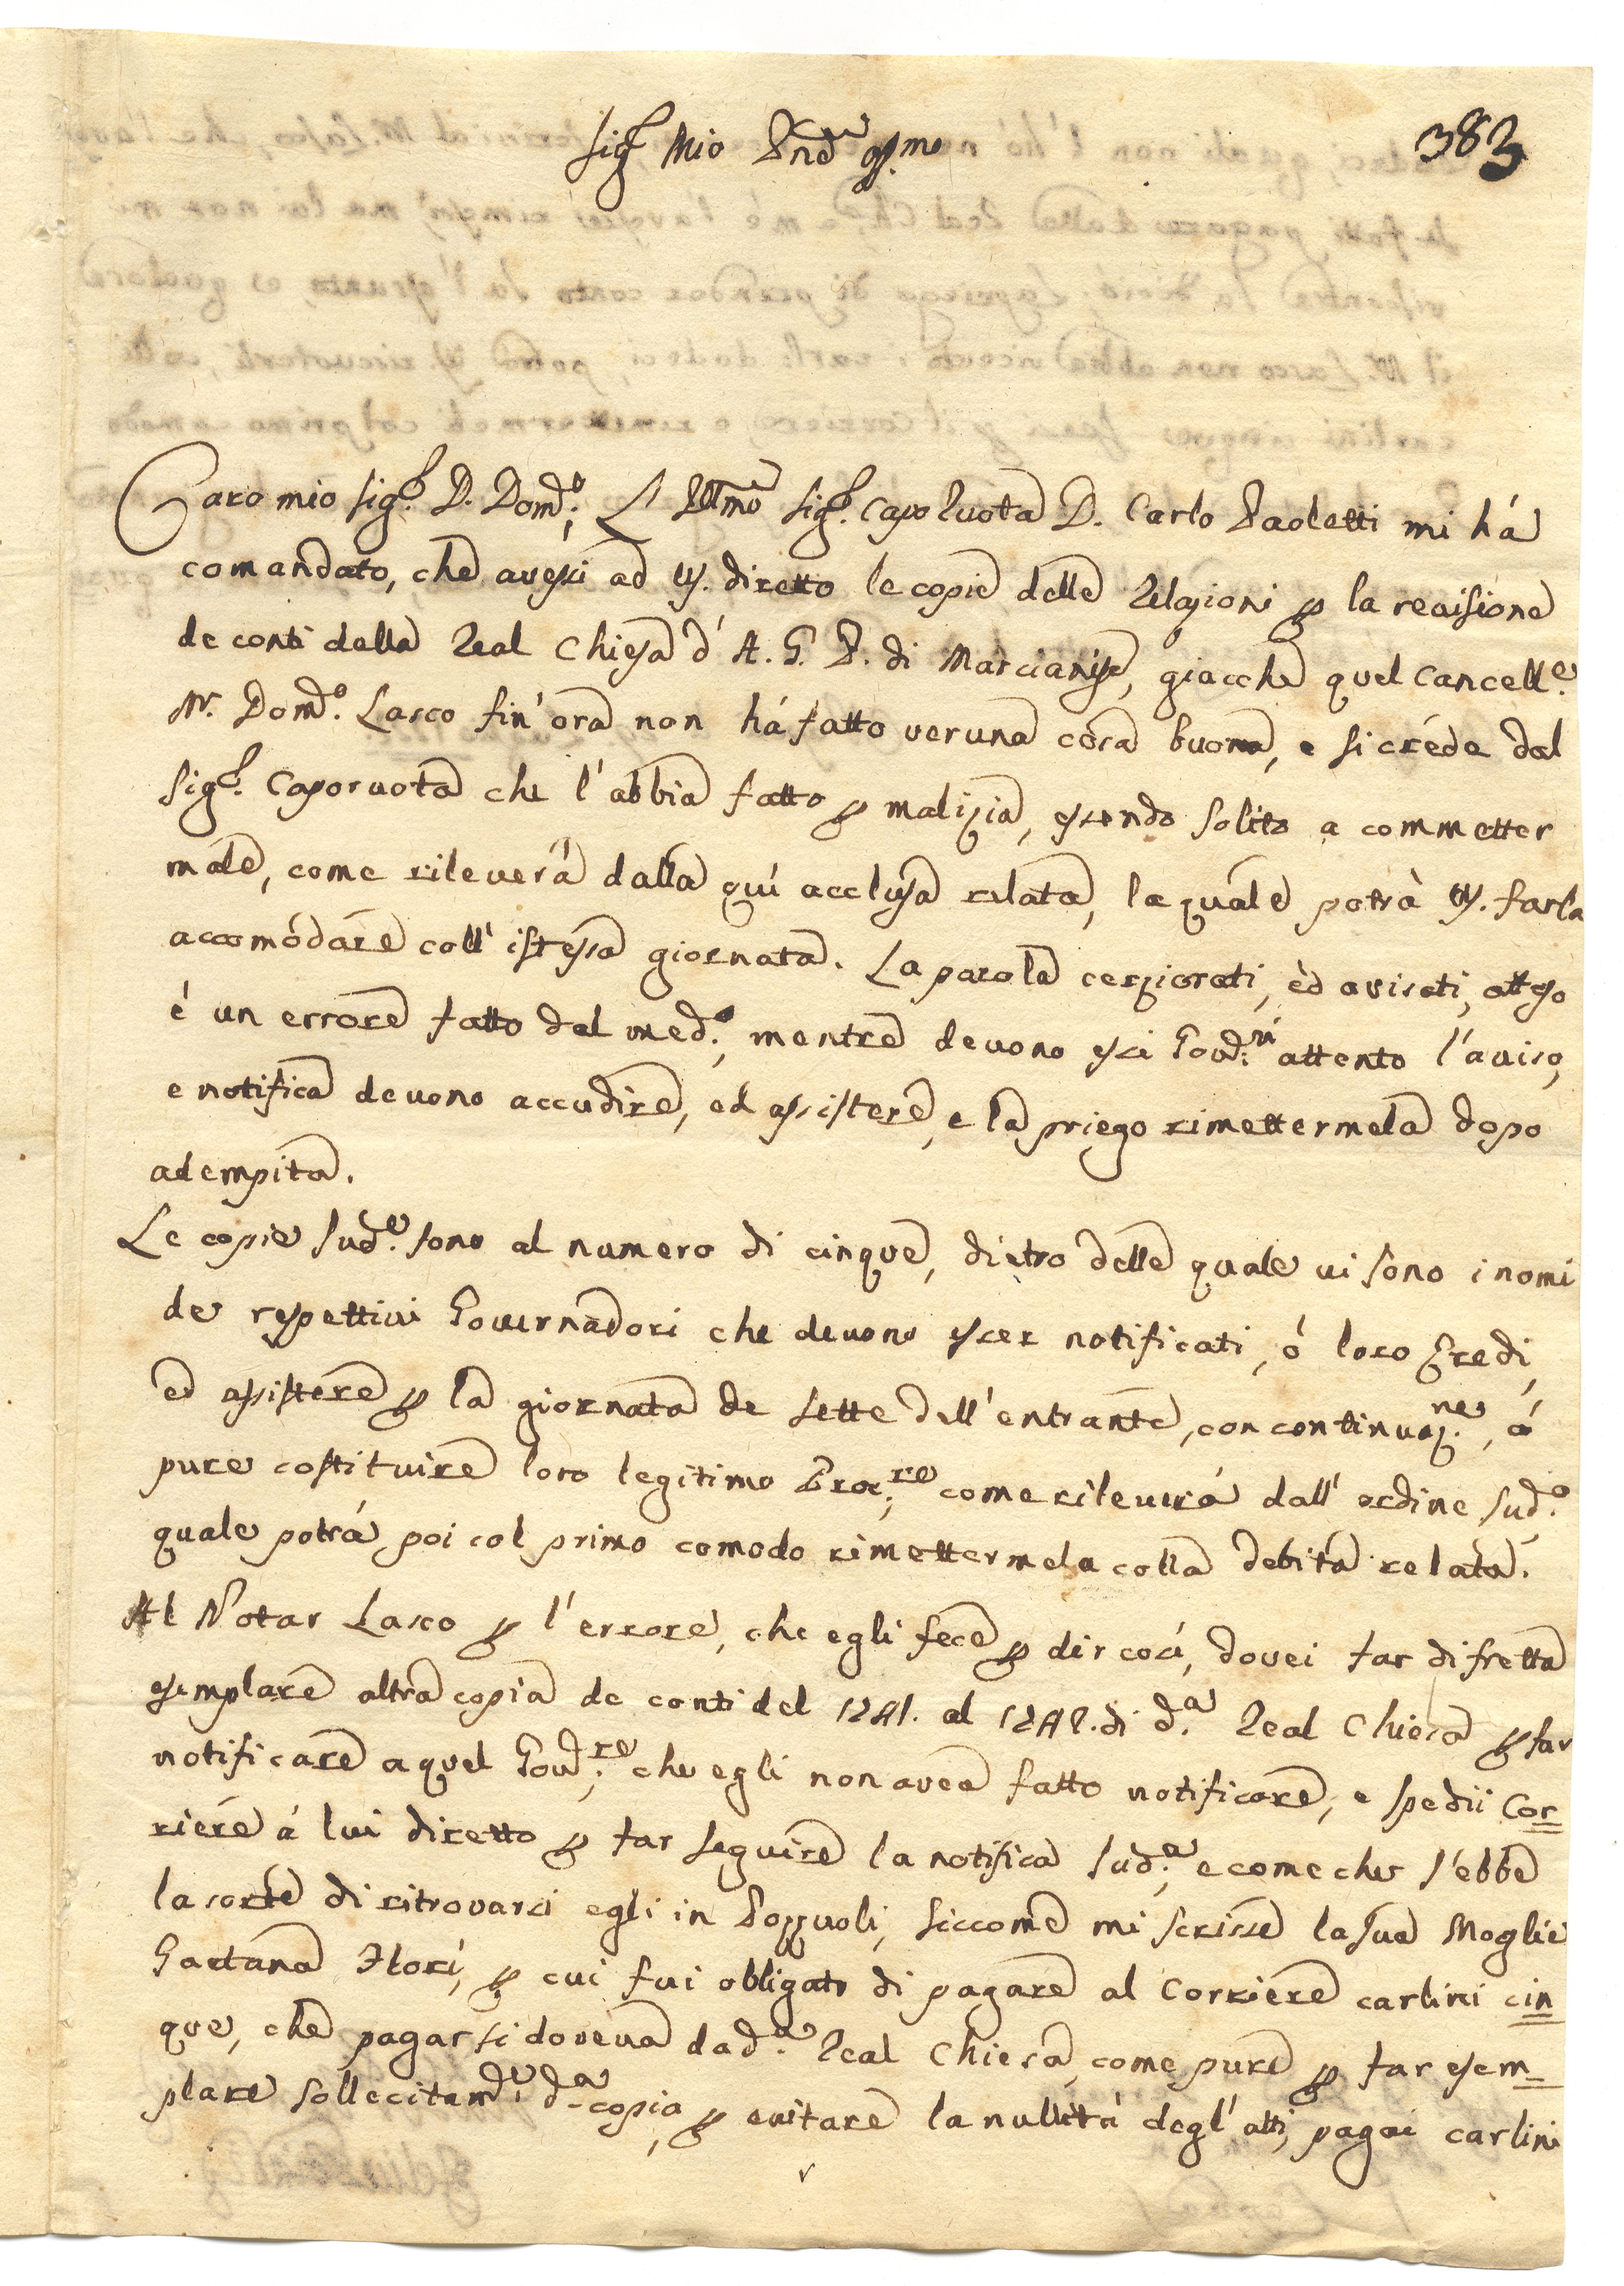 383
Sig.r Mio P̃ne oss.mo
Caro mio Sig.r D. Dom.o; L'Ill.mo Sig.r Capo Ruota D. Carlo Paoletti mi há
comandato, che avessi ad VS. diretto le copie delle relazioni p la revisione
de conti della Real Chiesa d'A. G. P. di Marcianise, giacche quel Cancell.e
Nr. Dom.o Lasco fin'ora non há fatto veruna cosa buona, e si crede dal
Sig.r Caporuota che l'abbia fatto p malizia, essendo solito a commetter
male, come rileverà dalla quì acclusa relata, la quale potrà VS. farla
accomodare coll'istessa giornata. La parola cerziorati, èd avisati, atteso
é un errore fatto dal med.o, mentre devono essi Gov.ri attento l'aviso,
e notifica devono accudire, ed assistere, e la priego rimettermela dopo
adempita.
Le copie sud.e sono al numero di cinque, dietro delle quale vi sono i nomi
de respettivi Governadori che devono esser notificati, ó loro Eredi,
ed assistere p la giornata de sette dell'entrante, con continuaz.ne, ó
pure costituire loro legitimo Proc.re, come rileverá dall'ordine sud.o
quale potrá poi col primo comodo rimettermela colla debita relata.
Al Notar Lasco p l'errore, che egli fece p dir cosí, dovei far di fretta
esemplare altra copia de conti del 1741. al 1742. di d.a Real Chiesa p far
notificare a quel Gov.re, che egli non avea fatto notificare, e spedii Cor=
riere á lui diretto p far seguire la notifica sud.a, e come che s'ebbe
la sorte di ritrovarsi egli in Pozzuoli, siccome mi scrisse la sua Moglie
Gaetana Flori, p cui fui obligato di pagare al Corriere carlini cin=
que, che pagar si doveva da d.a Real Chiesa, come pure p far esem=
plare sollecitam.te d.a copia, p evitare la nullità degl'atti, pagai carlini